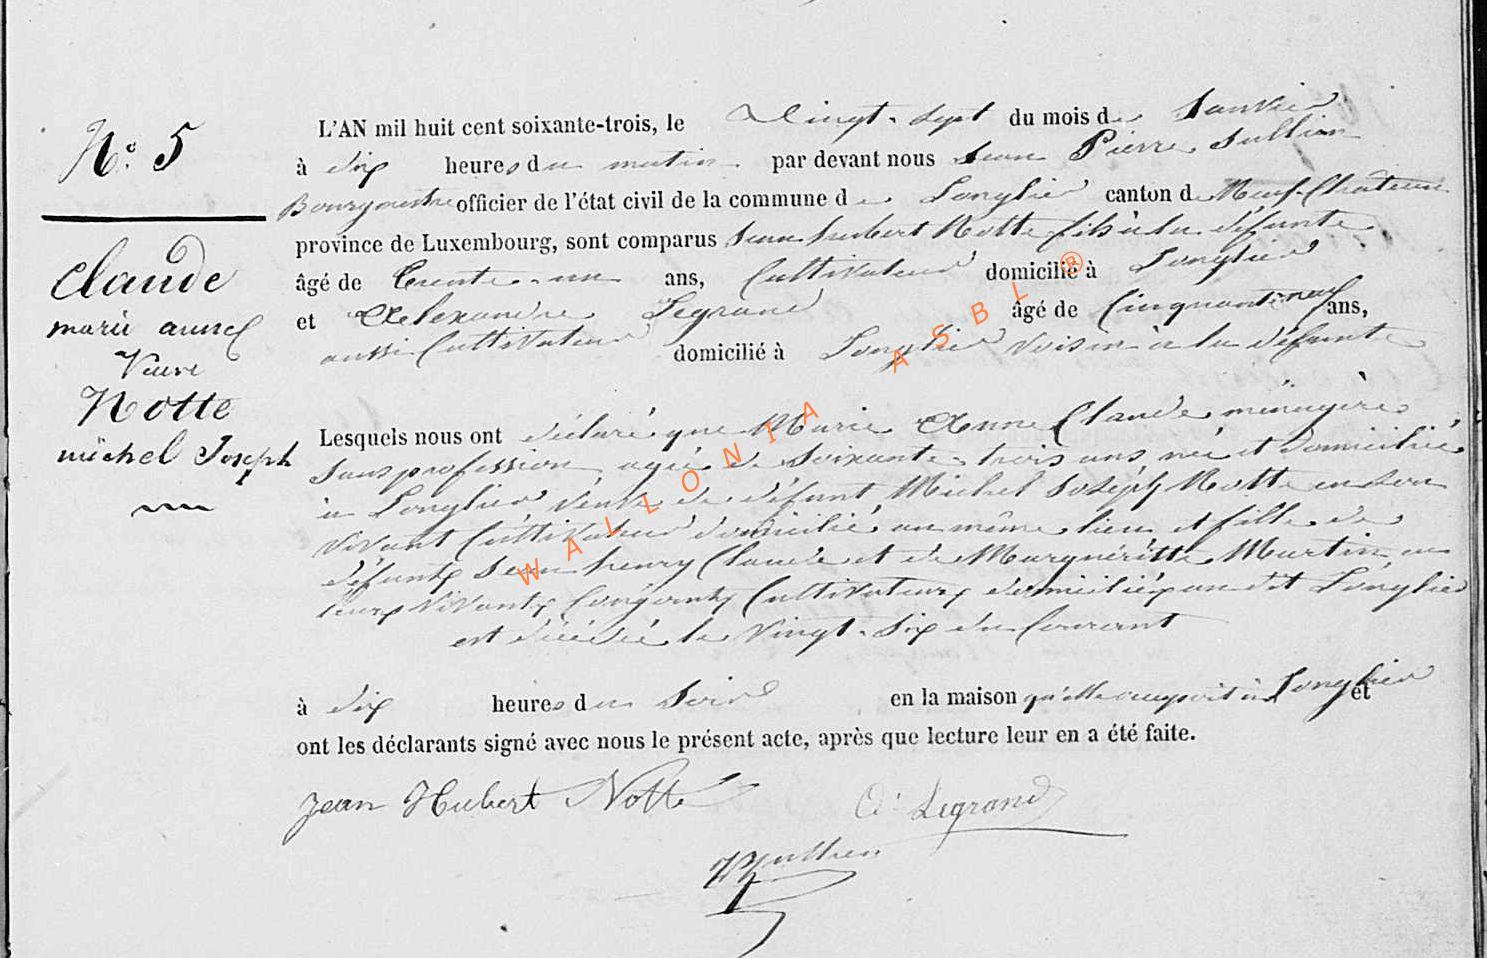 N.° 5
Claude
marie anne
Veuve
Notte
michel Joseph
L'AN mil huit cent soixante-trois, le Vingt-sept du mois de Janvier
à dix heures du matin par devant nous Jean Pierre Jullien
Bourgmestre officier de l'état civil de la commune de Longlier canton de Neufchâteau
province de Luxembourg, sont comparus Jean hubert Notte fils à la défunte
âgé de trente-un ans, Cultivateur domicilié à Longlier
et Alexandre Legrand âgé de Cinquante-neuf ans,
aussi Cultivateur domicilié à Longlier voisin à la défunte
Lesquels nous ont déclaré que Marie Anne Claude ménagère
sans profession agée de soixante-trois ans née et domiciliée
à Longlier Veuve de défunt Michel Joseph Notte en son
vivant Cultivateur domicilié au même lieu et fille de
défunts Jean henry Claude et de Marguéritte Martin en
leurs vivants Conjoints Cultivateurs domiciliés au dit Longlier
est décédée le Vingt-six du Courant
à dix heures du soir en la maison qu'elle occupoit à Longlier et
ont les déclarants signé avec nous le présent acte, après que lecture leur en a été faite.
Jean Hubert Notte A. Legrand
JPJullien
WALLONIA ASBL ®